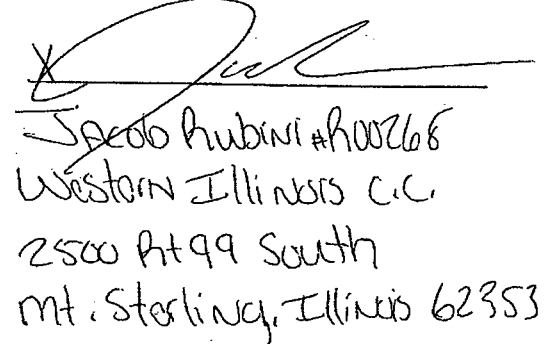 X
Jacob Rubini #R00268
Western Illinois C.C.
2500 Rt 99 South
Mt. Sterling, Illinois 62353